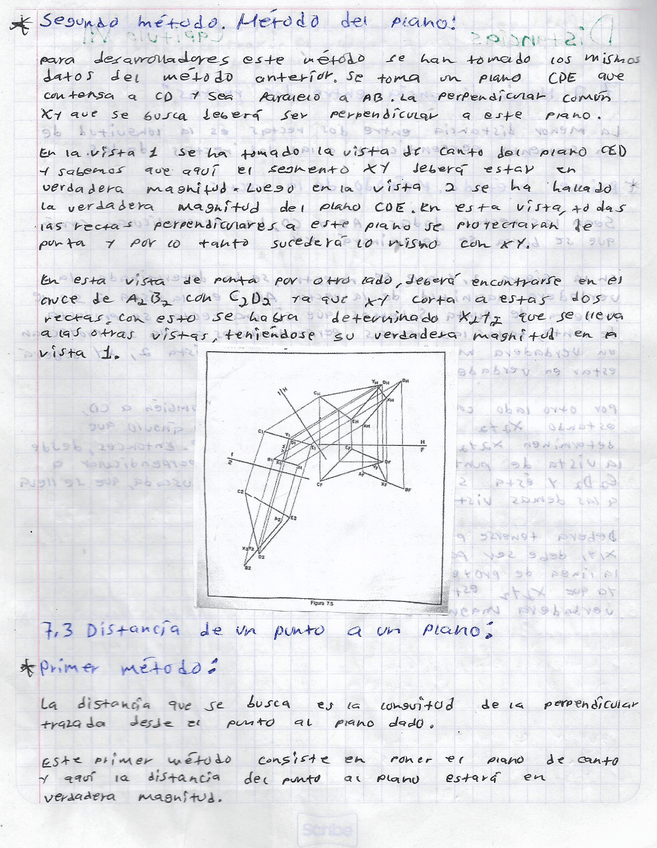 * Segundo método. Método del plano:
para desarrolladores este método se han tomado los mismos
datos del método anterior. se toma un plano CDE que
contensa a CD y sea paralelo a AB. La perpendicular común
XY que se busca deberá ser perpendicular a este plano.
En la vista 1 se ha tomado la vista de canto del plano CED
y sabemos que aquí el segmento XY deberá estar en
verdadera magnitud. Luego en la vista 2 se ha hallado
la verdadera magnitud del plano CDE. En esta vista, todas
las rectas perpendiculares a este plano se protectaran de
punta y por lo tanto sucederá lo mismo con XY.
En esta vista de punta por otro lado, deberá encontrarse en el
cruce de A2B2 con C2D2 ya que XY corta a estas dos
rectas, con esto se habra determinado X2Y2 que se lleva
a las otras vistas, teniéndose su verdadera magnitud en la
vista 1.
1 H
CH
YH DH
BH
XH
EH
AH
C1
H
F
1
2
CF
AF
XF
BF
C2
A2
E2
X2Y2
D2
B2
Figura 7.5
7.3 Distancia de un punto a un plano:
* Primer método:
La distancia que se busca es la longuitud de la perpendicular
trazada desde el punto al plano dado.
Este primer método consiste en poner el plano de canto
y aquí la distancia del punto al plano estará en
verdadera magnitud.
Scribe